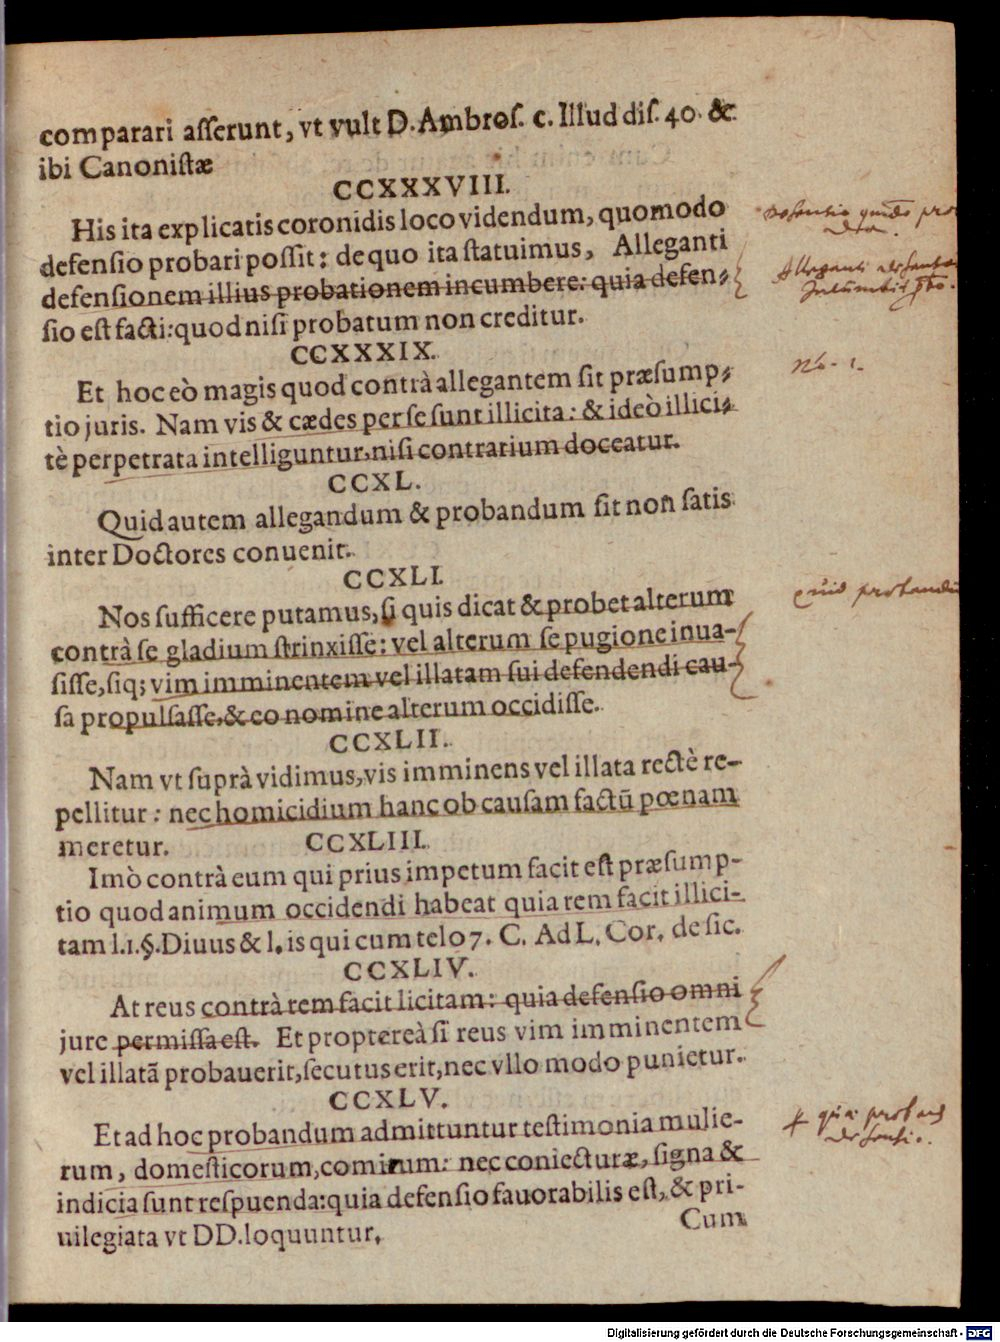 comparari asserunt, vt vult D. Ambros. c. Illud dis. 40. &
ibi Canonistæ
CCXXXVIII.
His ita explicatis coronidis loco videndum, quomodo
defensio probari possit: de quo ita statuimus, Alleganti
defensionem illius probationem incumbere: quia defen-
sio est facti: quod nisi probatum non creditur.
CCXXXIX.
Et hoc eò magis quod contrà allegantem sit præsump-
tio juris. Nam vis & cædes per se sunt illicita: & ideò illici-
tè perpetrata intelliguntur, nisi contrarium doceatur.
No. 1.
CCXL.
Quid autem allegandum & probandum sit non satis
inter Doctores conuenit.
CCXLI.
Nos sufficere putamus, si quis dicat & probet alterum
contrà se gladium strinxisse: vel alterum se pugione inua-
sisse, siq; vim imminentem vel illatam sui defendendi cau-
sa propulsasse, & eo nomine alterum occidisse.
quid probandū
CCXLII.
Nam vt suprà vidimus, vis imminens vel illata rectè re-
pellitur: nec homicidium hanc ob causam factū pœnam
meretur.
CCXLIII.
Imò contrà eum qui prius impetum facit est præsump-
tio quod animum occidendi habeat quia rem facit illici-
tam l. 1. §. Diuus & l. is qui cum telo 7. C. Ad L. Cor. de sic.
CCXLIV.
At reus contrà rem facit licitam: quia defensio omni
jure permissa est. Et proptereà si reus vim imminentem
vel illatā probauerit, secutus erit, nec vllo modo punietur.
CCXLV.
Et ad hoc probandum admittuntur testimonia mulie-
rum, domesticorum, comitum: nec coniecturæ, signa &
indicia sunt respuenda: quia defensio fauorabilis est, & pri-
uilegiata vt DD. loquuntur.
Cum
Digitalisierung gefördert durch die Deutsche Forschungsgemeinschaft - DFG